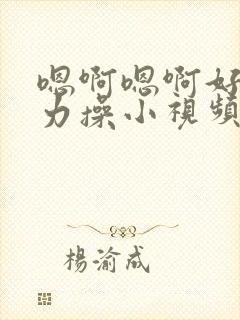 嗯啊嗯啊好
力操小視頻
楊渝成